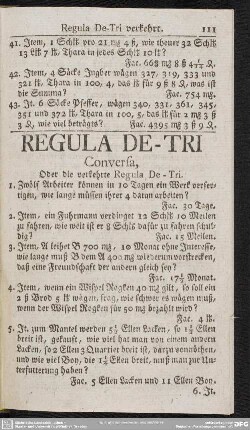 Regula De-Tri verkehrt. 111
41. Item, 1 Schlt pro 21 mg 4 ß, wie theuer 32 Schlt
13 Llt 7 lt. Thara in jedes Schlt 10 lt?
Fac. 668 mg 8 ß
42. Item, 4 Säcke Ingber wägen 327, 319, 333 und
321 lt, Thara in 100, 4, das lt für 9 ß 8 Q, was ist
die Summa? Fac. 754 mg.
43. It. 6 Säcke Pfeffer, wägen 340, 331, 361, 345,
351 und 372 lt, Thara in 100, 5, das lt für 2 mg 3 ß
3 Q, wie viel beträgts? Fac. 4395 mg 3 ß 9 Q.
REGULA DE-TRI
Conversa,
Oder die verkehrte Regula De-Tri.
1. Zwölf Arbeiter können in 10 Tagen ein Werk verfer-
tigen, wie lange müssen ihrer 4 daran arbeiten?
Fac. 30 Tage.
2. Item, ein Fuhrmann verdinget 12 Schlt 10 Meilen
zu fahren, wie weit ist er 8 Schlt dafür zu fahren schul-
dig? Fac. 15 Meilen.
3. Item, A leihet B 700 mg, 10 Monat ohne Interesse,
wie lange muß B dem A 400 mg wiederum vorstrecken,
daß eine Freundschaft der andern gleich sey?
Fac. 17½ Monat.
4. Item, wenn ein Wispel Rogken 40 mg gilt, so soll ein
2 ß Brod 5 lt wägen, frag, wie schwer es wägen muß,
wenn der Wispel Rogken für 50 mg bezahlt wird?
Fac. 4 lt.
5. It. zum Mantel werden 5½ Ellen Lacken, so 1½ Ellen
breit ist, gekauft, wie viel hat man von einem andern
Lacken, so 2 Ellen 3 Quartier breit ist, darzu vonnöthen,
und wie viel Boy, die 1¼ Ellen breit, muß man zur Un-
terfutterung haben?
Fac. 3 Ellen Lacken und 11 Ellen Boy.
6. It.